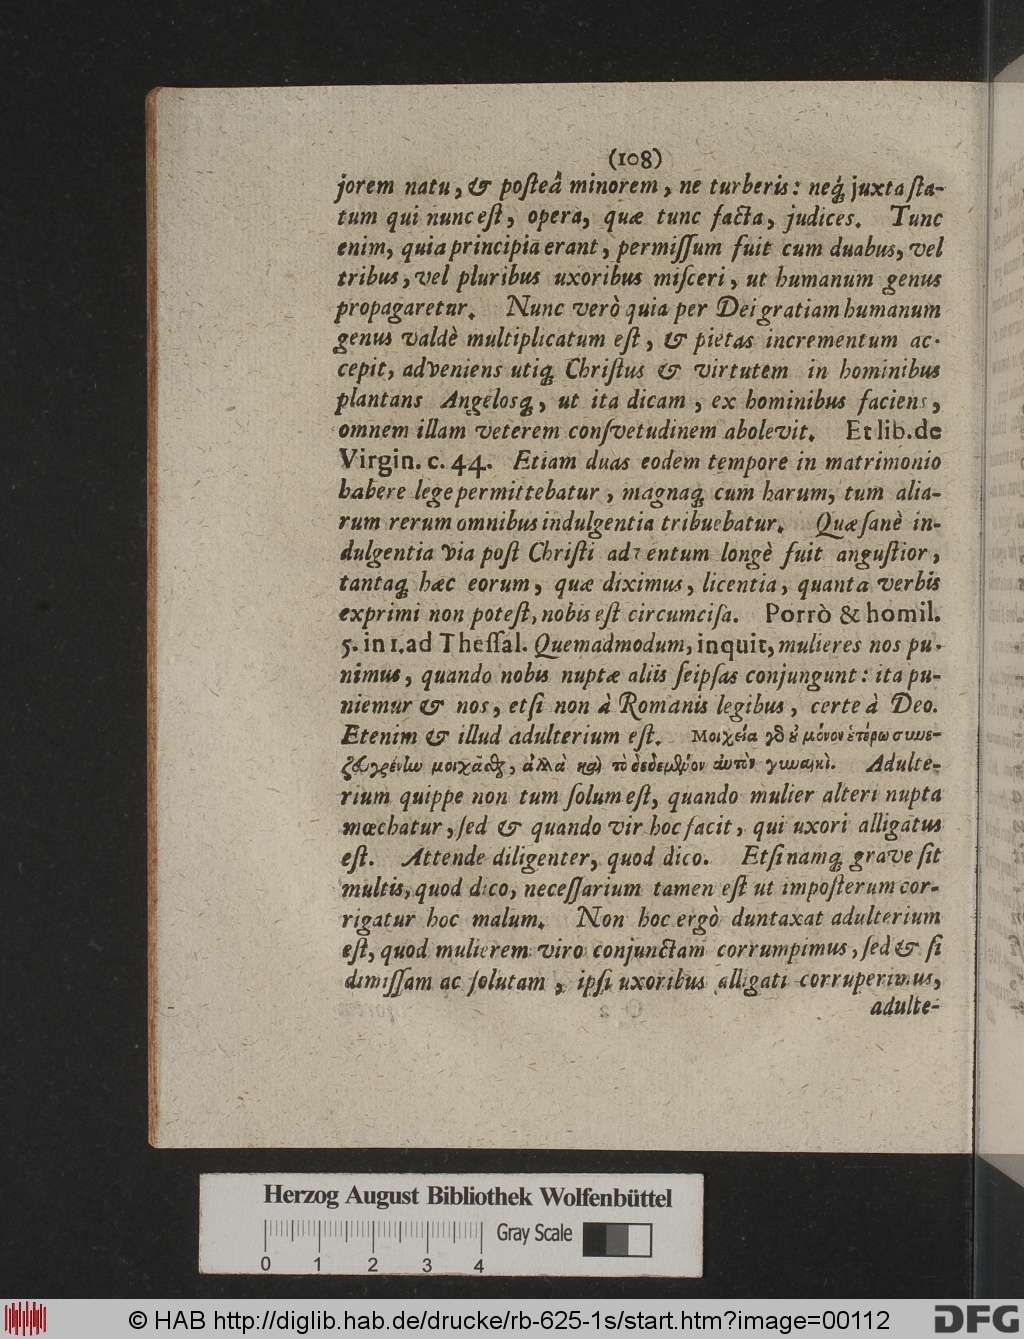 (108)
jorem natu, & posteâ minorem, ne turberis: neq́; juxta sta-
tum qui nunc est, opera, quæ tunc facta, judices. Tunc
enim, quia principia erant, permissum fuit cum duabus, vel
tribus, vel pluribus uxoribus misceri, ut humanum genus
propagaretur. Nunc verò quia per Dei gratiam humanum
genus valdè multiplicatum est, & pietas incrementum ac-
cepit, adveniens utiq; Christus & virtutem in hominibus
plantans Angelosq;, ut ita dicam, ex hominibus faciens,
omnem illam veterem consvetudinem abolevit. Et lib. de
Virgin. c. 44. Etiam duas eodem tempore in matrimonio
habere lege permittebatur, magnaq; cum harum, tum alia-
rum rerum omnibus indulgentia tribuebatur. Quæ sanè in-
dulgentia via post Christi adventum longè fuit angustior,
tantaq; hæc eorum, quæ diximus, licentia, quanta verbis
exprimi non potest, nobis est circumcisa. Porrò & homil.
5. in 1. ad Thessal. Quemadmodum, inquit, mulieres nos pu-
nimus, quando nobis nuptæ aliis seipsas conjungunt: ita pu-
niemur & nos, etsi non à Romanis legibus, certe à Deo.
Etenim & illud adulterium est. Μοιχεία γδ οὐ μόνον ἑτέρω συνε-
ζευγμένην μοιχᾶσθαι, ἀλλὰ καὶ τὸ δεδεμένον αὐτὸν γυναικὶ. Adulte-
rium quippe non tum solum est, quando mulier alteri nupta
mœchatur, sed & quando vir hoc facit, qui uxori alligatus
est. Attende diligenter, quod dico. Etsi namq; grave sit
multis, quod dico, necessarium tamen est ut imposterum cor-
rigatur hoc malum. Non hoc ergò duntaxat adulterium
est, quod mulierem viro conjunctam corrumpimus, sed & si
dimissam ac solutam, ipsi uxoribus alligati corruperimus,
adulte-
Herzog August Bibliothek Wolfenbüttel
Gray Scale
0 1 2 3 4
© HAB http://diglib.hab.de/drucke/rb-625-1s/start.htm?image=00112
DFG